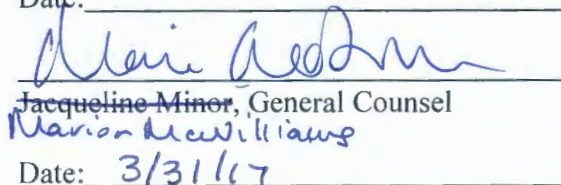 Date:
Jacqueline Minor, General Counsel
Marion McWilliams
Date: 3/31/17